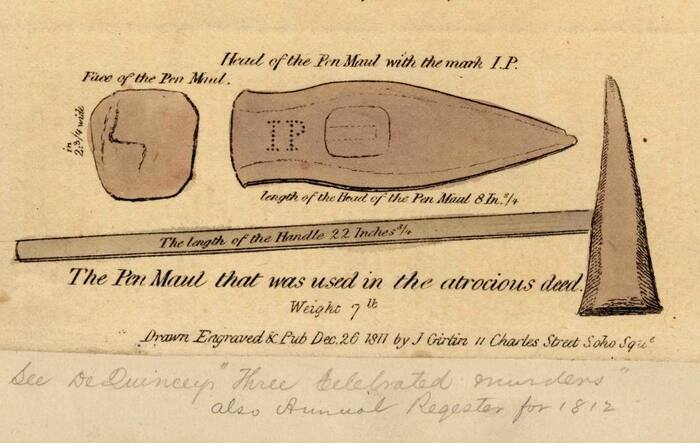 Head of the Pen Maul with the mark I.P.
Face of the Pen Maul.
in
2.3/4 wide
IP
length of the Head of the Pen Maul 8 In.3/4
The length of the Handle 22 Inches 3/4
The Pen Maul that was used in the atrocious deed.
Weight 7 lb
Drawn Engraved & Pub Dec. 26 1811 by J Girtin 11 Charles Street Soho Sque
See De Quincey's "Three Celebrated murders"
also Annual Regester for 1812